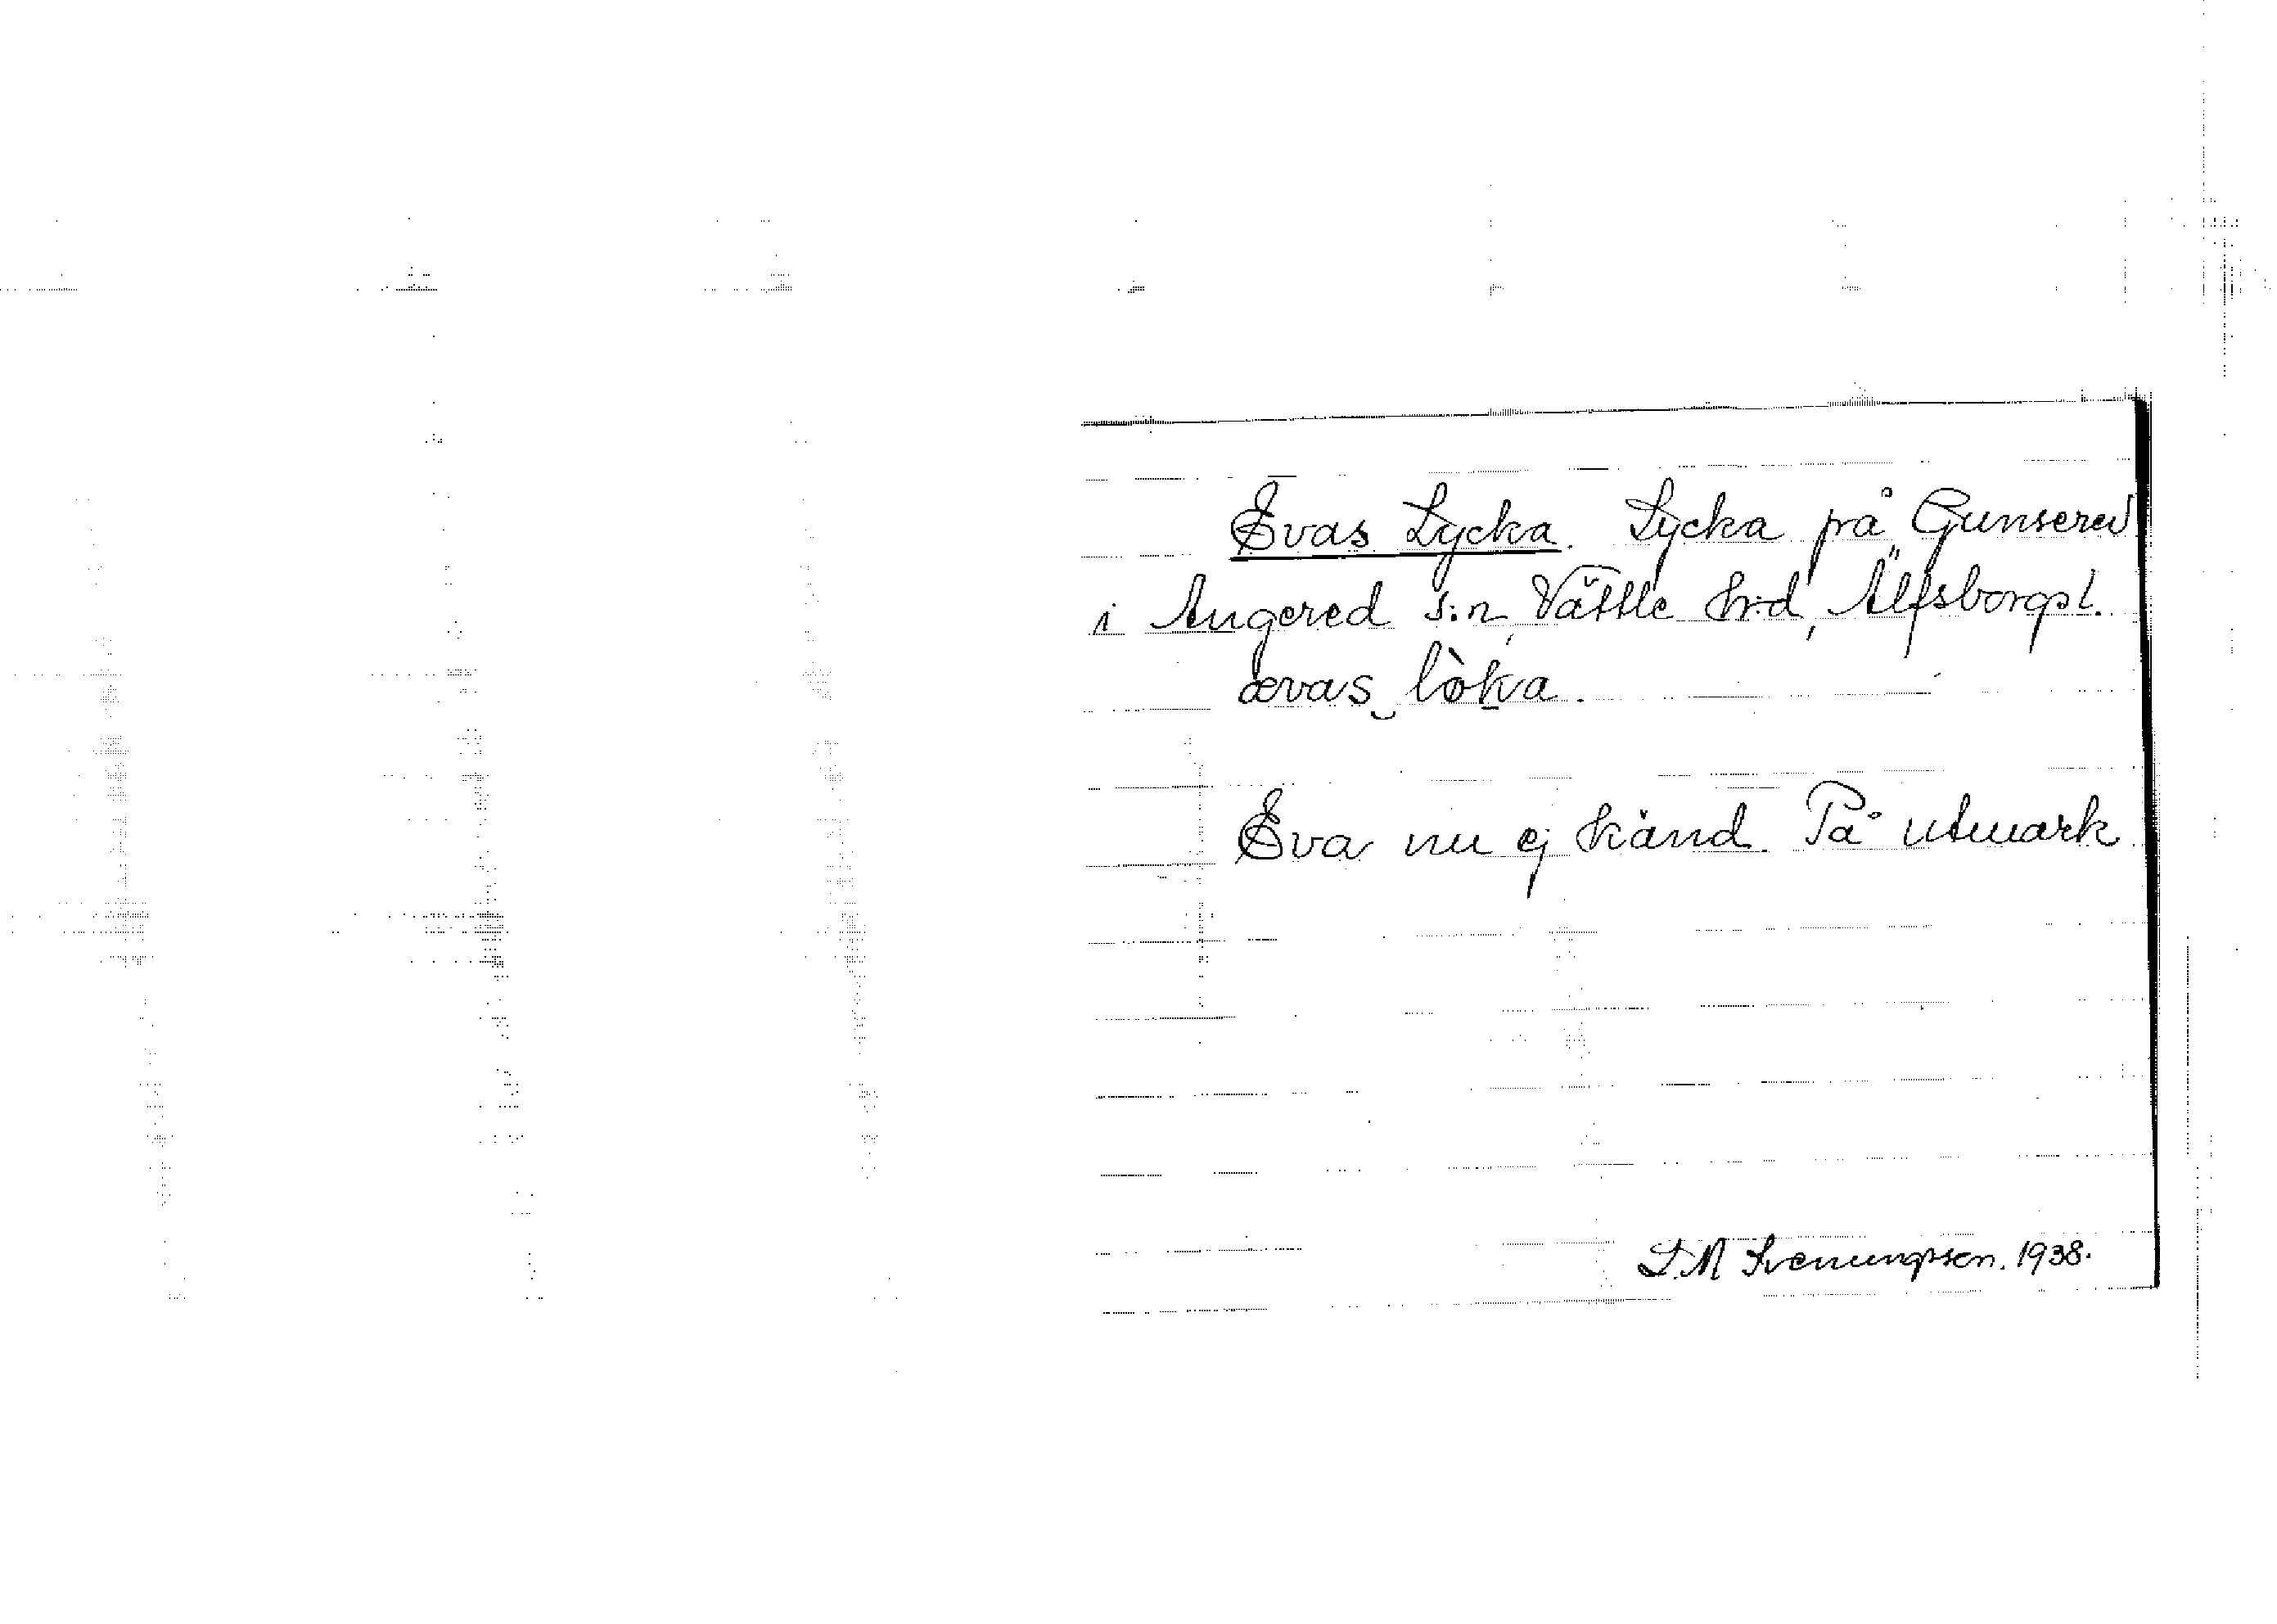 Evas Lycka. Lycka på Gunsered
i Angered s:n, Vättle hrd, Älfsborgs l.
ævas‿lòka.
Eva nu ej känd. På utmark
D.N Svenungsson. 1938.